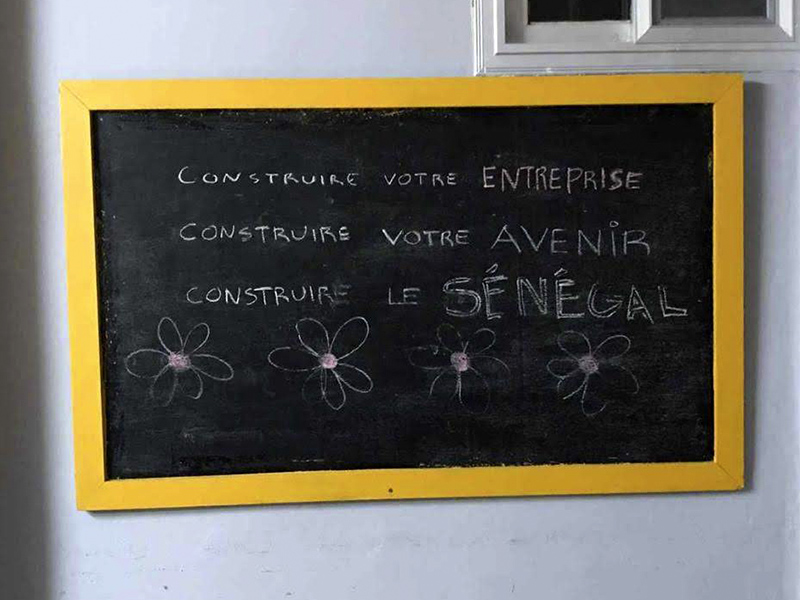 CONSTRUIRE VOTRE ENTREPRISE
CONSTRUIRE VOTRE AVENIR
CONSTRUIRE LE SÉNÉGAL